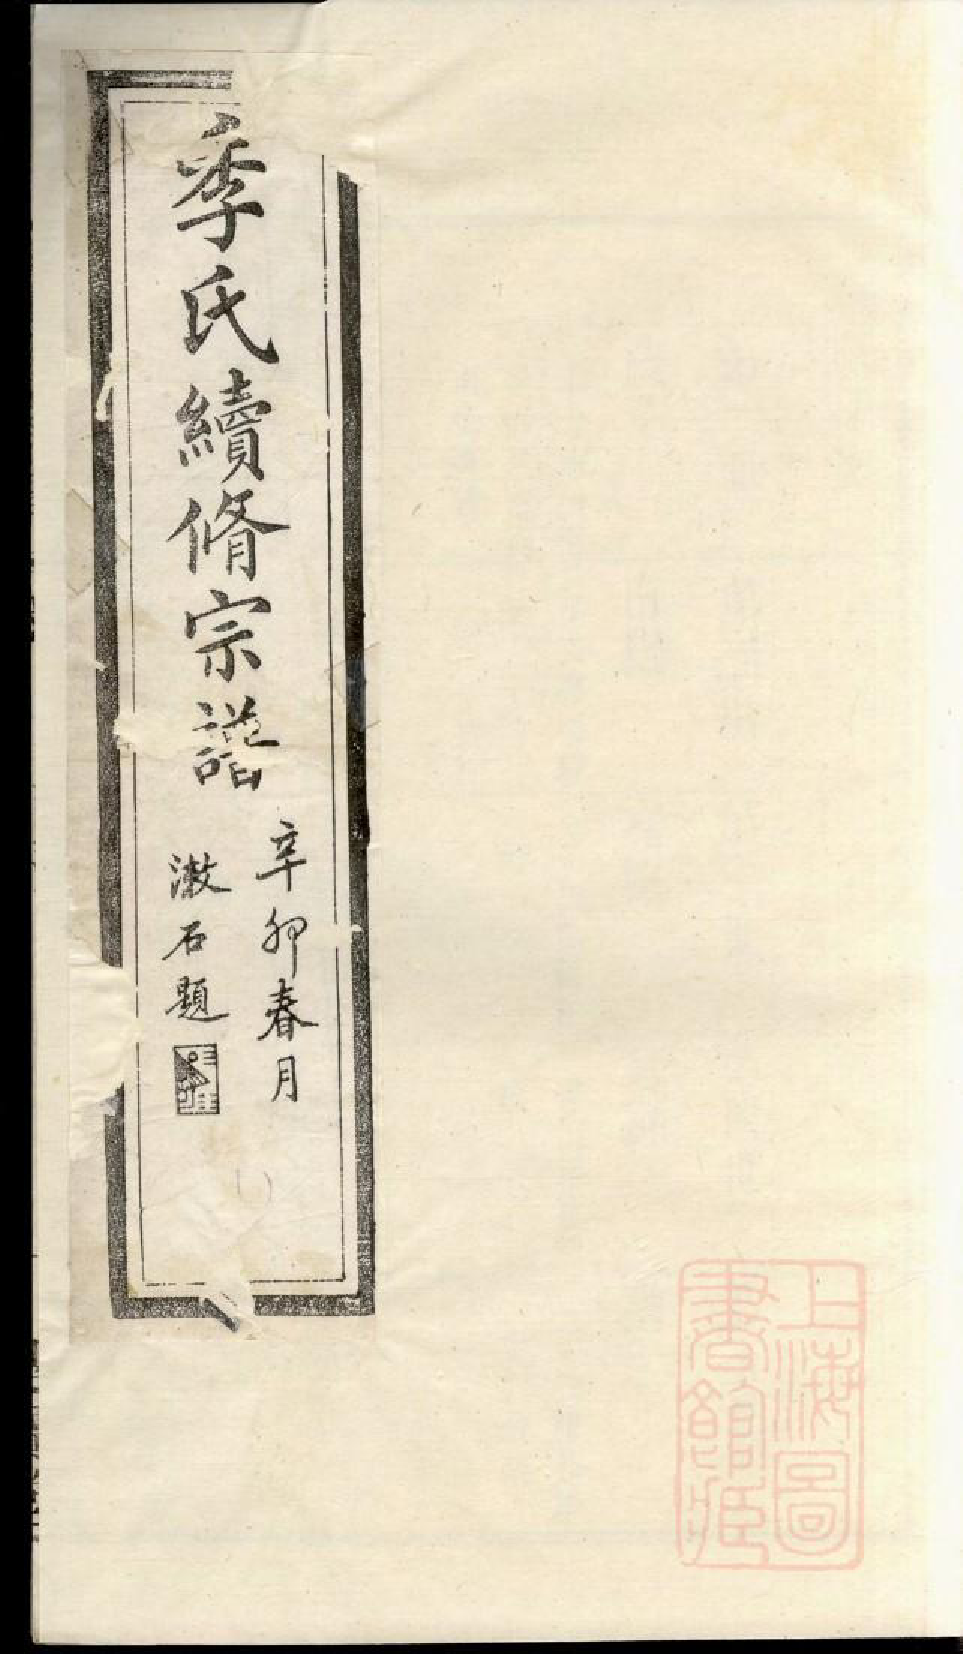 季氏續脩宗譜
辛卯春月
漱石題
上海圖
書館藏